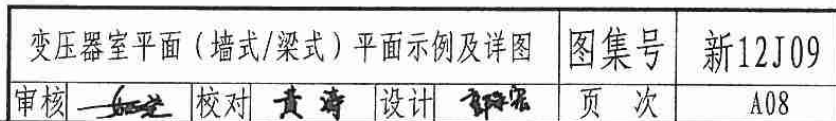 变压器室平面（墙式/梁式）平面示例及详图 图集号 新12J09
审核 校对 黄涛 设计 页次 A08